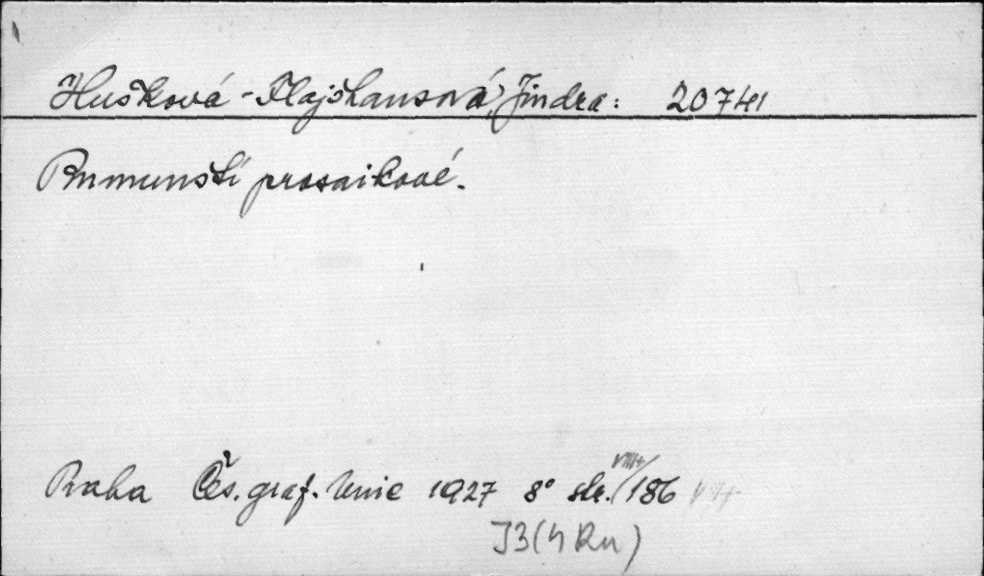 Hušková-Flajšhansová, Jindra: 20741
Rumunští prosaikové.
Praha Čes. graf. Unie 1927 8° str. VIII+/186
J3(4 Ru)